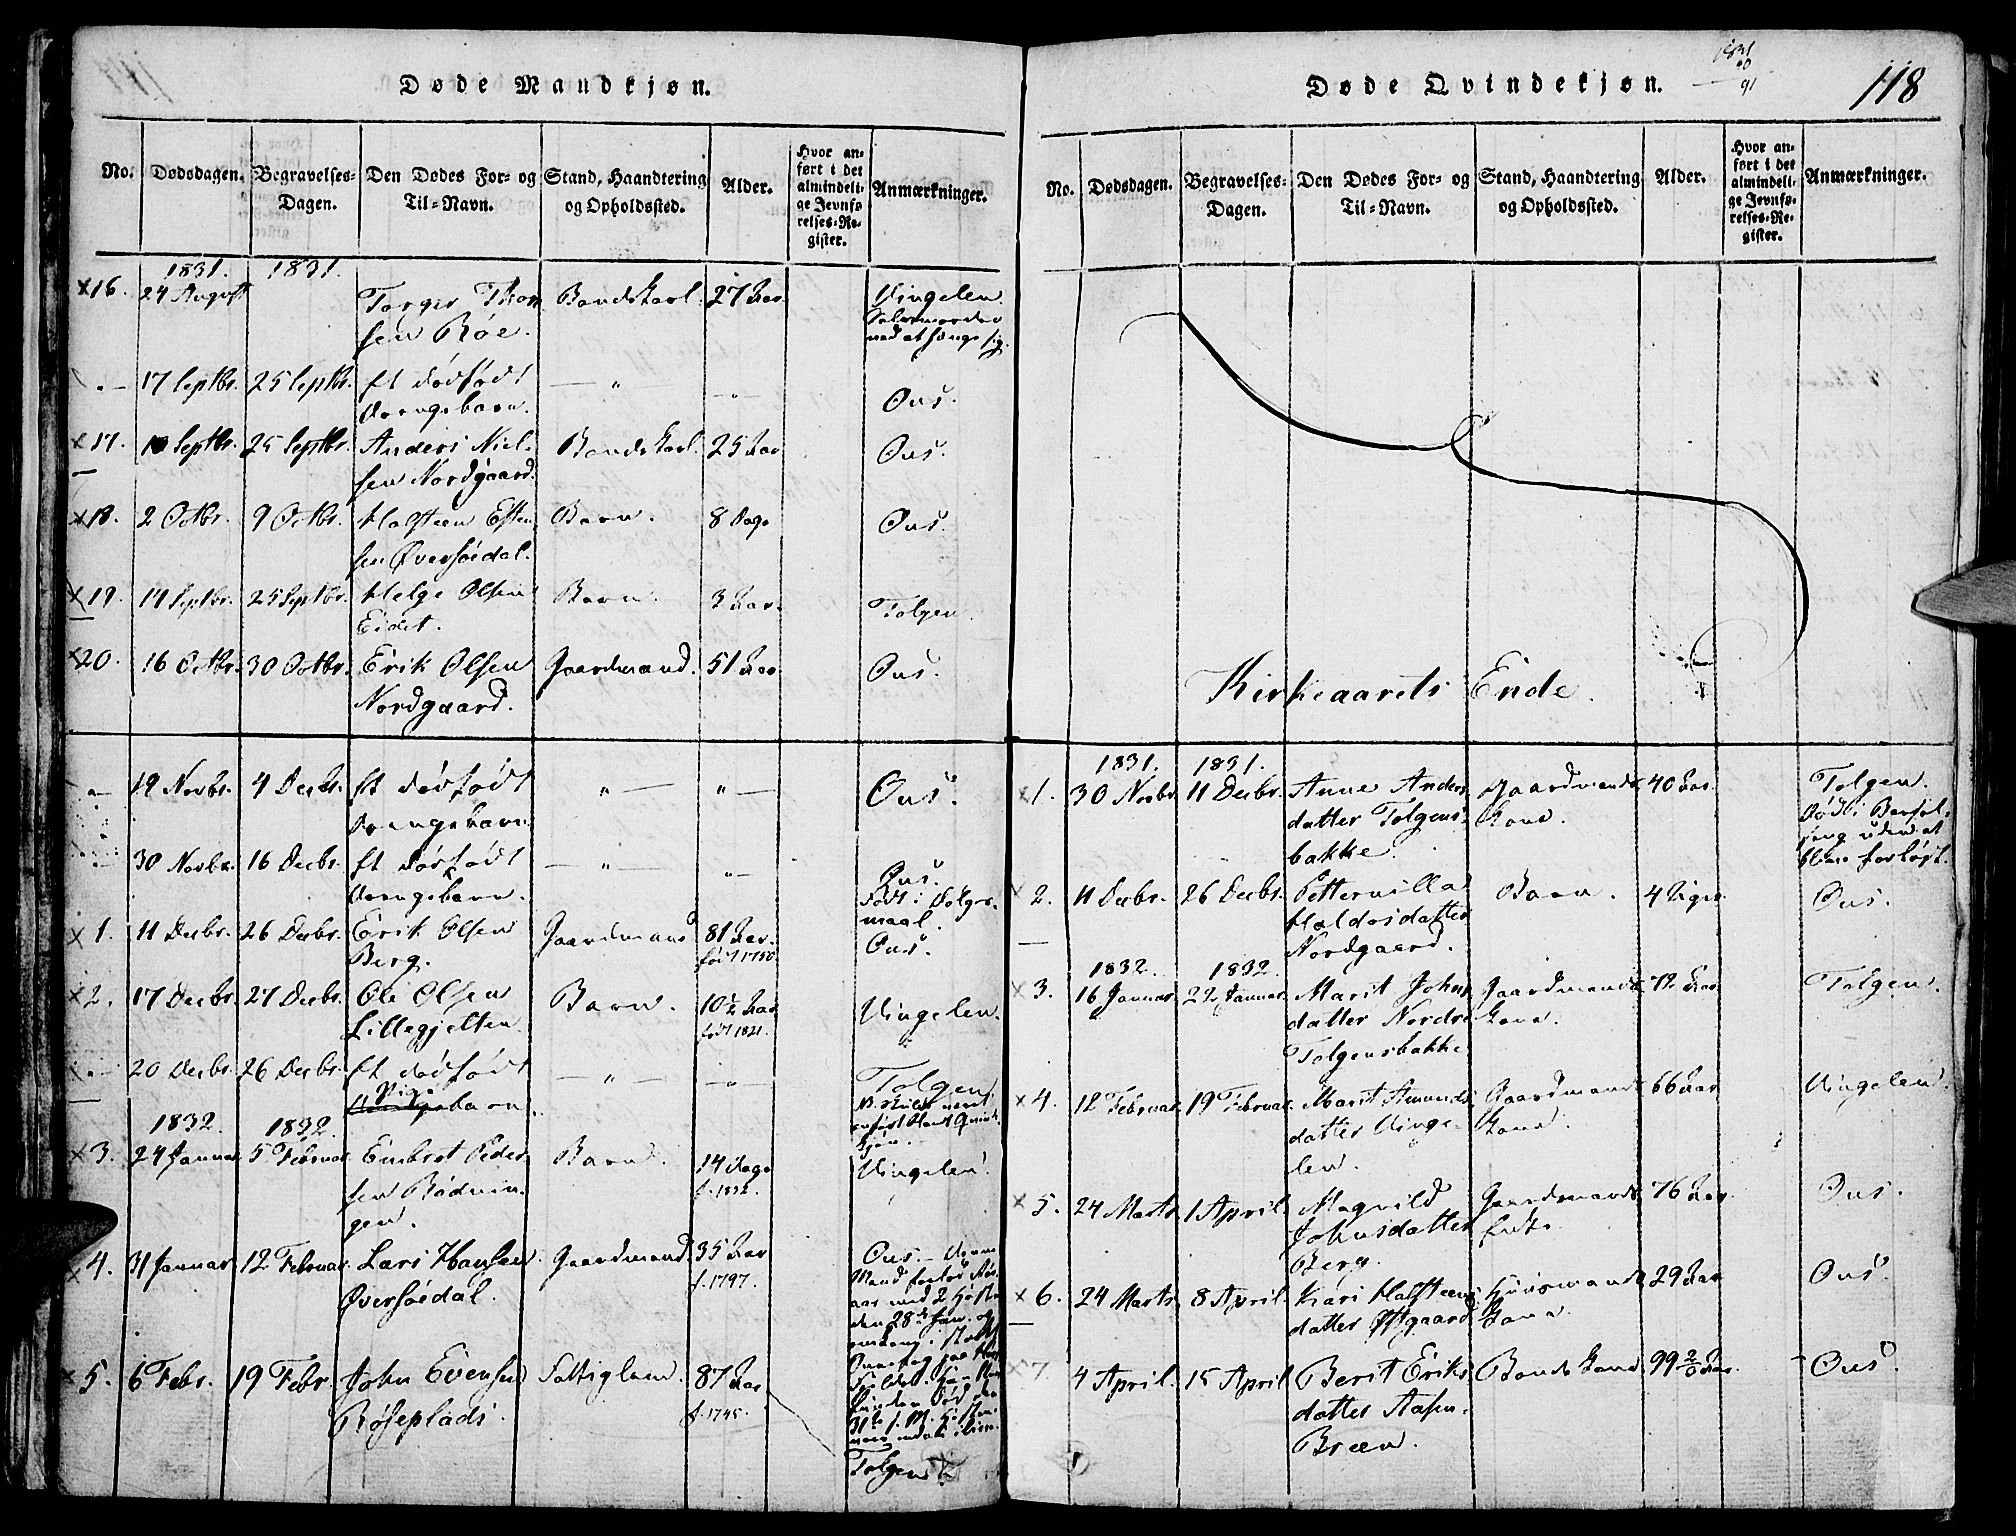 Døde Mandkjøn.
No. Dødsdagen. Begravelses-Dagen. Den Dødes For- og Til-Navn. Stand, Haandtering og Opholdssted. Alder. Hvor anført i det almindelige Jevnførelses-Register. Anmærkninger.
1831. 1831.
×16. 24 August Torger Thom Bondekarl. 27 Aar. Vingelen.
sen Røe. Selvmorder
ved at hænge sig.
17 Septbr. 25 Septbr. Et dødfødt — " — Ous.
Drengebarn.
×17. Septbr. 25 Septbr. Anders Niel- Bondekarl. 25 Aar Ous.
sen Nordgaard.
×18. 2 Octbr. 9 Octbr. Halsteen Esten Barn. 8 Dage Ous.
sen Øversøedal.
×19. 14 Septbr. 25 Septbr. Helge Olsen Barn. 3 Aar. Tolgen.
Eidet.
×20. 16 Octbr. 30 Octbr. Erik Olsen Gaardmand. 51 Aar Ous.
Nordgaard.
19 Novbr. 4 Decbr. Et dødfødt " — " — Ous.
Drengebarn.
30 Novbr. 16 Decbr. Et dødfødt — " — Ous.
Drengebarn. Født i Dølgs-
maal.
×1. 11 Decbr. 26 Decbr. Erik Olsen Gaardmand 81 Aar. Ous.
Berg. født 1750.
×2. 17 Decbr. 27 Decbr. Ole Olsen Barn. 10½ Aar Vingelen.
Lillegjelten. født 1821.
20 Decbr. 26 Decbr. Et dødfødt — " — Tolgen
Pigebarn.
1832. 1832.
×3. 24 Januar 5 Februar Embret Peder Barn. 14 Dage Vingelen.
sen Rødvin- f. 1832.
gen.
×4. 31 Januar 12 Februar. Lars Hansen Gaardmand. 35 Aar Ous.
Øversøedal. f. 1797.
×5. 6 Febr. 19 Febr John Evensen Fattiglem. 87 Aar
Røseplads. f. 1745.
Tolgen
Døde Qvindekjøn. 118
1831
91
No. Dødsdagen. Begravelses-Dagen. Den Dødes For- og Til-Navn. Stand, Haandtering og Opholdssted. Alder. Hvor anført i det almindelige Jevnførelses-Register. Anmærkninger.
Kirkeaarets Ende.
1831. 1831.
×1. 30 Novbr. 11 Decbr. Anne Anders Gaardmands 40 Aar. Tolgen.
datter Tolgens- Kone. Død i Barsel-
bakke. seng uden at
blive forløst.
2. 11 Decbr. 26 Decbr. Petternilla Barn. 4 Uger. Ous.
Haldosdatter
Nordgaard.
1832. 1832.
×3. 16 Januar 22 Januar. Marit Johns Gaardmands 72 Aar Tolgen.
datter Nordre Kone.
Tolgensbakke.
×4. 12 Februar. 19 Februar. Marit Amunds Gaardmands 66 Aar Vingelen.
datter Vinge- Kone.
len.
×5. 24 Marts 1 April. Magnild Gaardmands 76 Aar Ous.
Johnsdatter Enke.
Berg.
×6. 24 Marts 8 April. Kari Halsteens Huusmands 29 Aar Ous.
datter Østgaard Kone.
×7. 4 April. 15 April Berit Eriks Bondekone 99 Aar. Ous.
datter Aasen.
Breen.